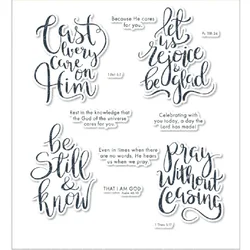 Cast
every
Care
on
Him
Because He cares
for you.
let
us
rejoice
& be glad
Rest in the knowledge that
the God of the universe
cares for you.
Celebrating with
you today, a day the
Lord has made!
be
Still
&
know
Even in times when
there are no words, He hears
us when we pray.
THAT I AM GOD
Pray
Without
Ceasing